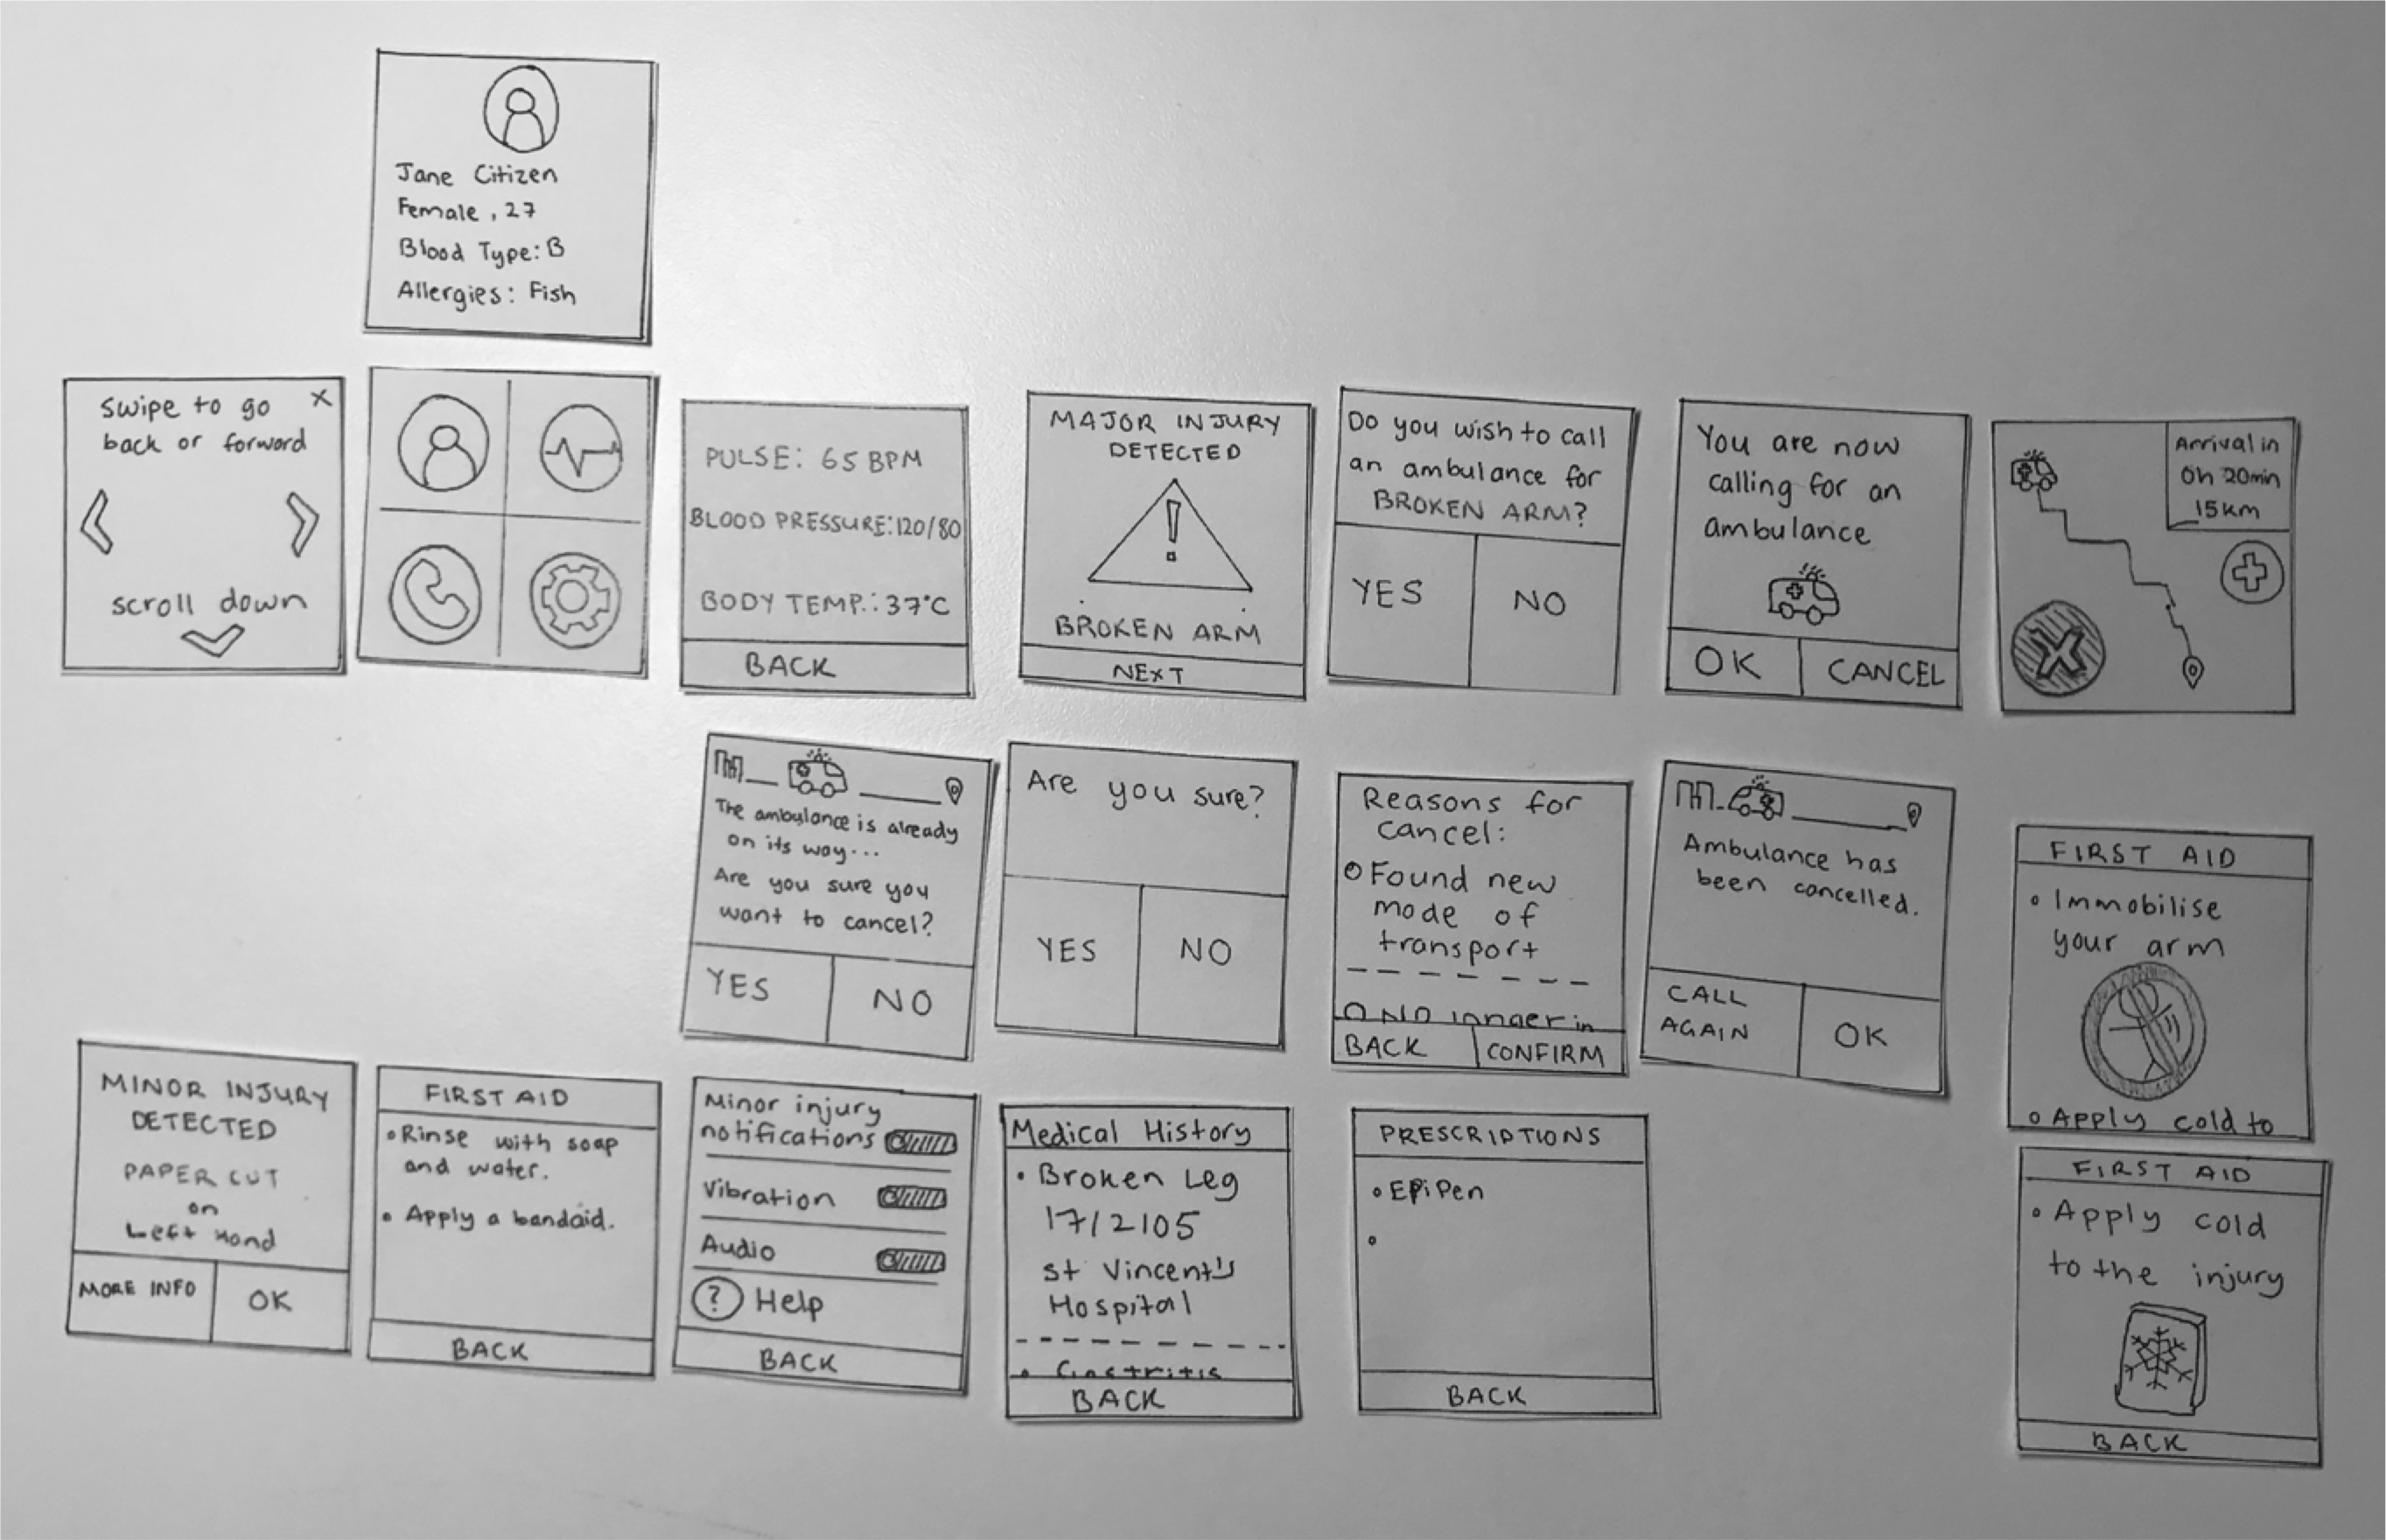 Jane Citizen
Female, 27
Blood Type: B
Allergies: Fish
Swipe to go X
back or forward
scroll down
PULSE: 65 BPM
BLOOD PRESSURE: 120/80
BODY TEMP.: 37°C
BACK
MAJOR INJURY
DETECTED
!
BROKEN ARM
NEXT
Do you wish to call
an ambulance for
BROKEN ARM?
YES NO
You are now
calling for an
ambulance
OK CANCEL
Arrival in
0h 20min
15km
X
The ambulance is already
on its way...
Are you sure you
want to cancel?
YES NO
Are you sure?
YES NO
Reasons for
cancel:
Found new
mode of
transport
No longer in
BACK CONFIRM
Ambulance has
been cancelled.
CALL
AGAIN
OK
FIRST AID
• Immobilise
your arm
• Apply cold to
MINOR INJURY
DETECTED
PAPER CUT
on
Left Hand
MORE INFO OK
FIRST AID
• Rinse with soap
and water.
• Apply a bandaid.
BACK
Minor injury
notifications
Vibration
Audio
? Help
BACK
Medical History
• Broken Leg
17/2105
St Vincent's
Hospital
• Gastritis
BACK
PRESCRIPTIONS
• EpiPen
•
BACK
FIRST AID
• Apply cold
to the injury
BACK